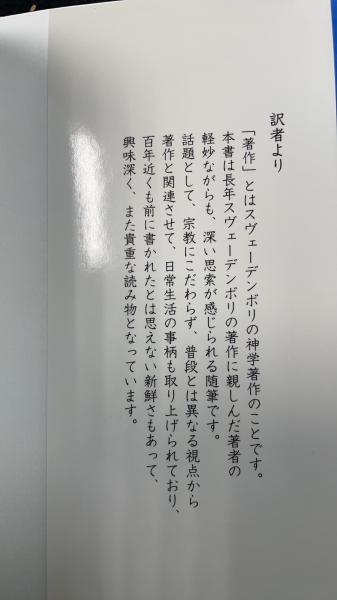 訳者より
「著作」とはスヴェーデンボリの神学著作のことです。
本書は長年スヴェーデンボリの著作に親しんだ著者の
軽妙ながらも、深い思索が感じられる随筆です。
話題として、宗教にこだわらず、普段とは異なる視点から
著作と関連させて、日常生活の事柄も取り上げられており、
百年近くも前に書かれたとは思えない新鮮さもあって、
興味深く、また貴重な読み物となっています。